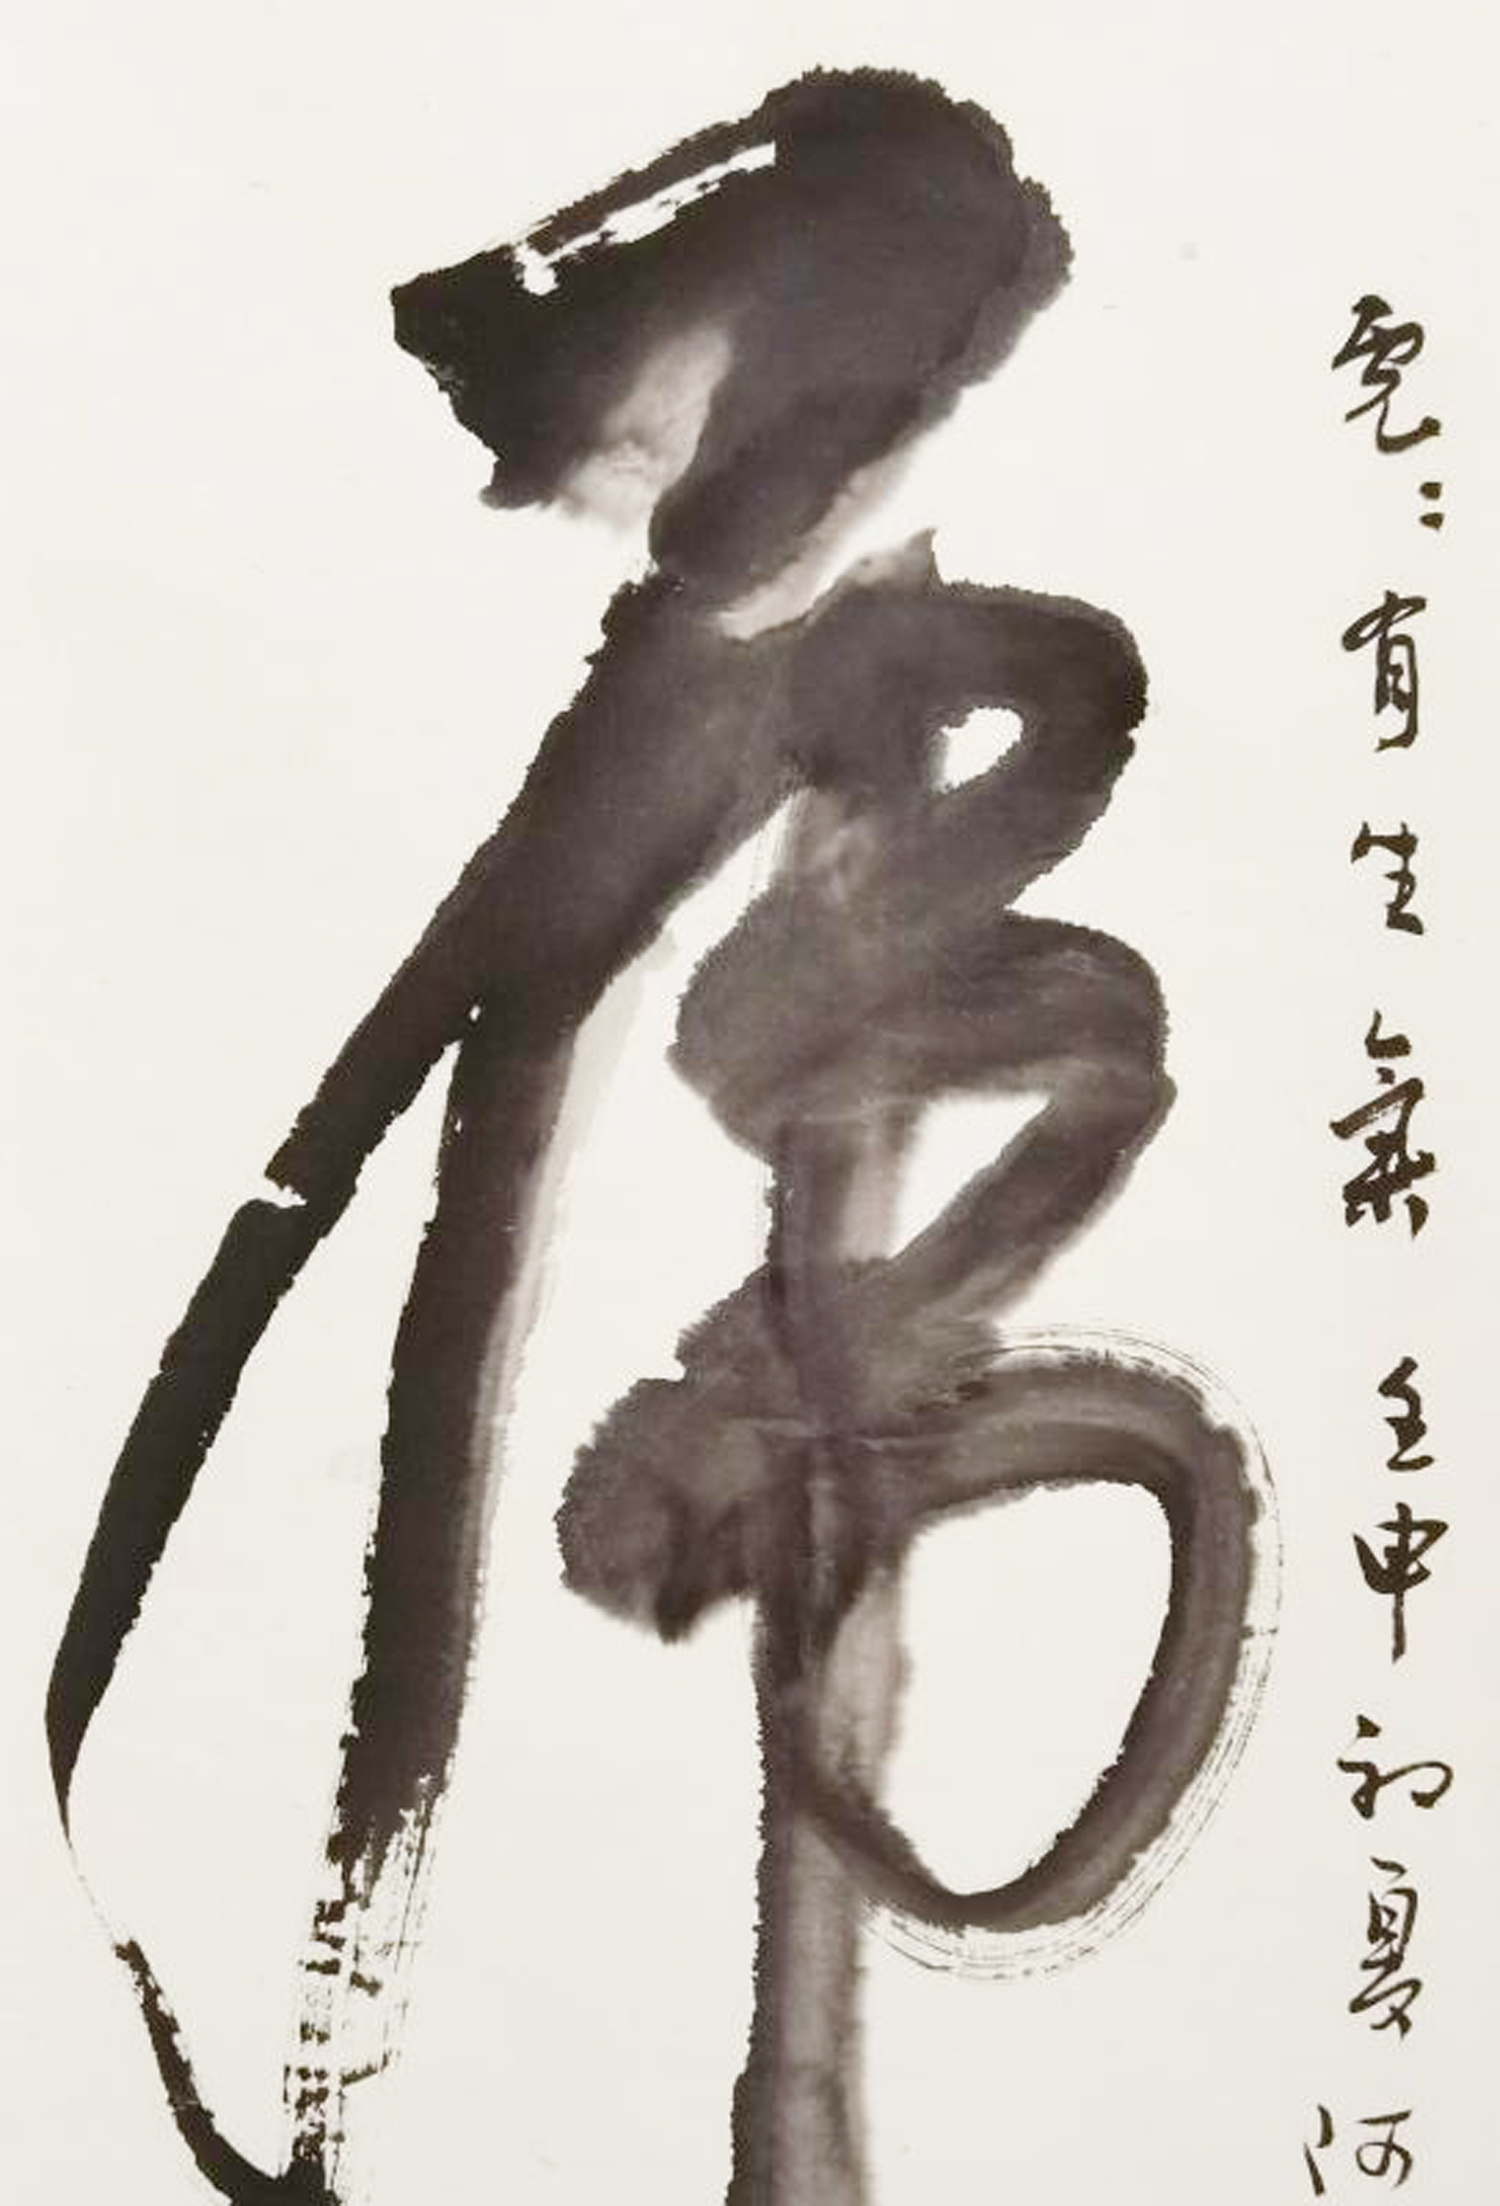 虎〻有生氣 壬申初夏 阿
虎